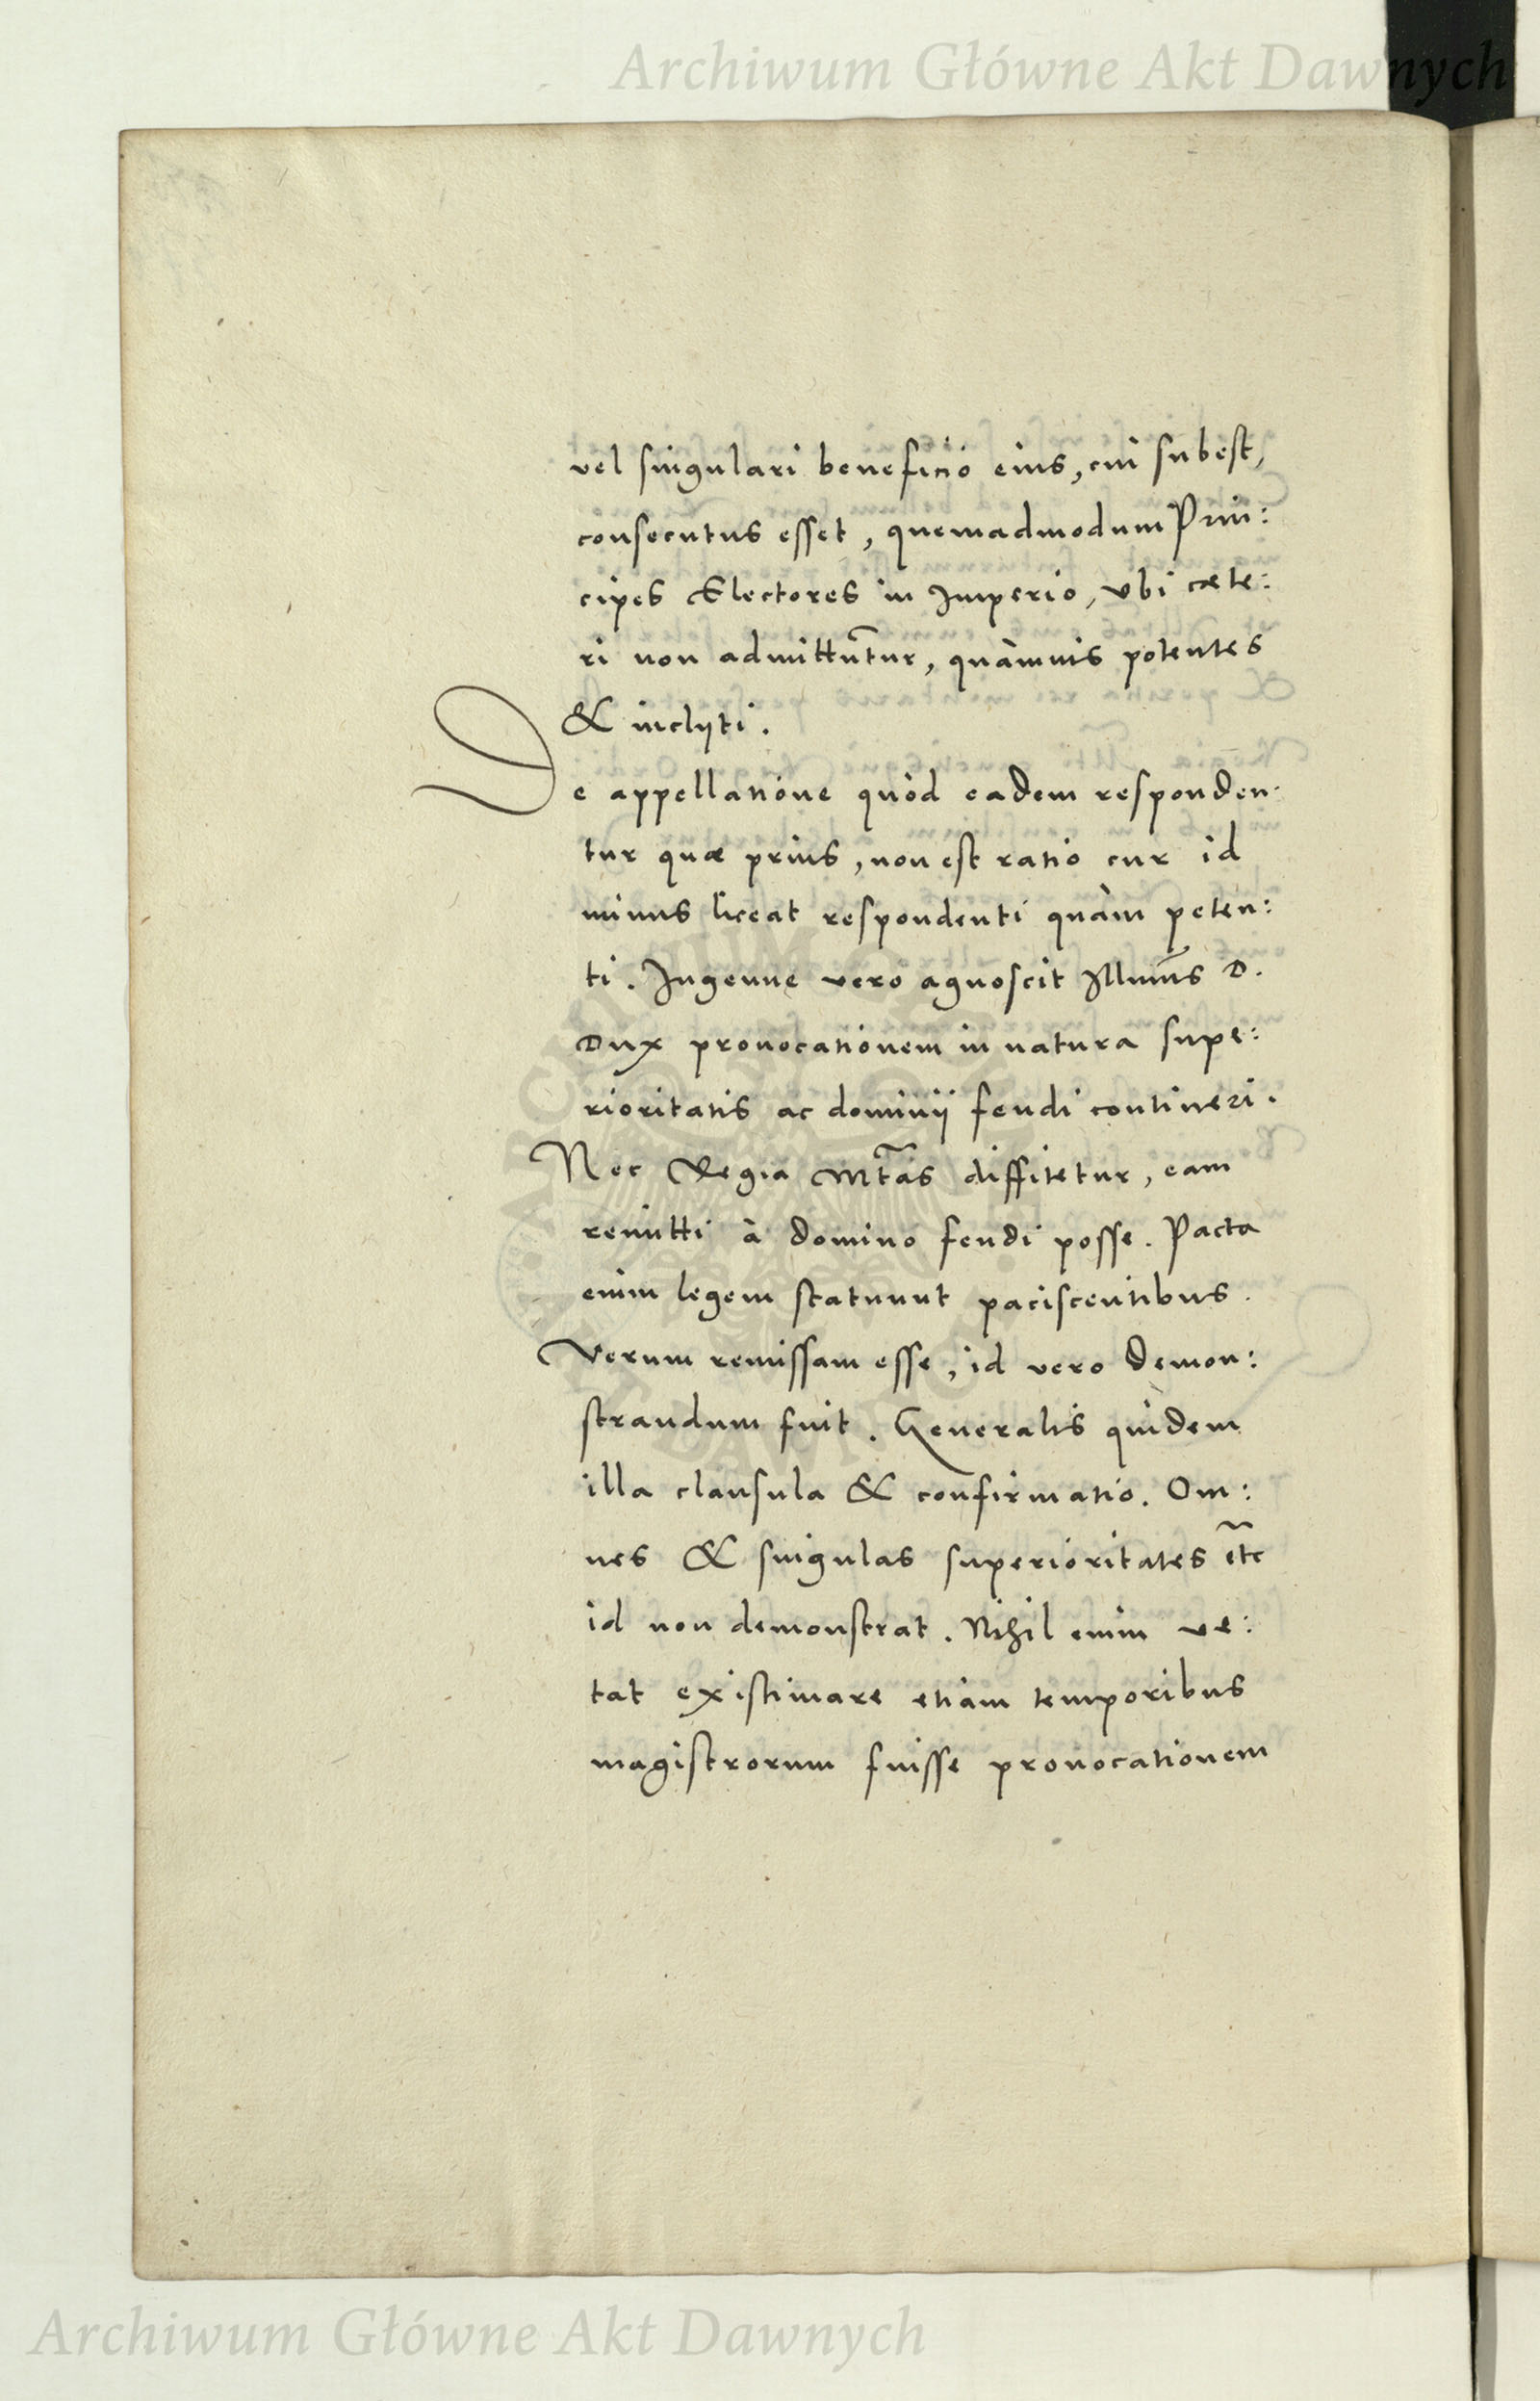 Archiwum Główne Akt Dawnych
vel singulari beneficio eius, cui subest,
consecutus esset, quemadmodum Prin:
cipes Electores in Imperio, vbi cæte:
ri non admittuntur, quàmuis potentes
& inclyti.
De appellatione quòd eadem responden:
tur quæ prius, non est ratio cur id
minus liceat respondenti quàm peten:
ti. Ingenue vero agnoscit Illmus D.
Dux prouocationem in natura supe:
rioritatis ac dominij feudi contineri.
Nec Regia Mtas diffitetur, eam
remitti à domino feudi posse. Pacta
enim legem statuunt paciscentibus.
Verum remissam esse, id vero demon:
strandum fuit. Generalis quidem
illa clausula & confirmatio. Om:
nes & singulas superioritates etc
id non demonstrat. Nihil enim ve:
tat existimare etiam temporibus
magistrorum fuisse prouocationem
Archiwum Główne Akt Dawnych